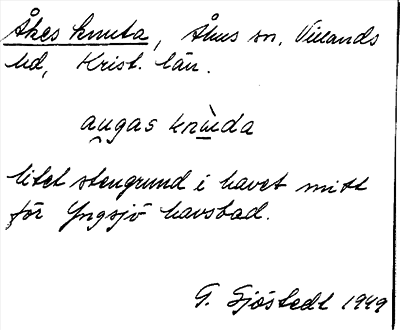 Åkes knuta, Åhus sn, Villands
hd, Krist. län.
augas knùda
litet stengrund i havet mitt
för Yngsjö havsbad.
G. Sjöstedt 1949